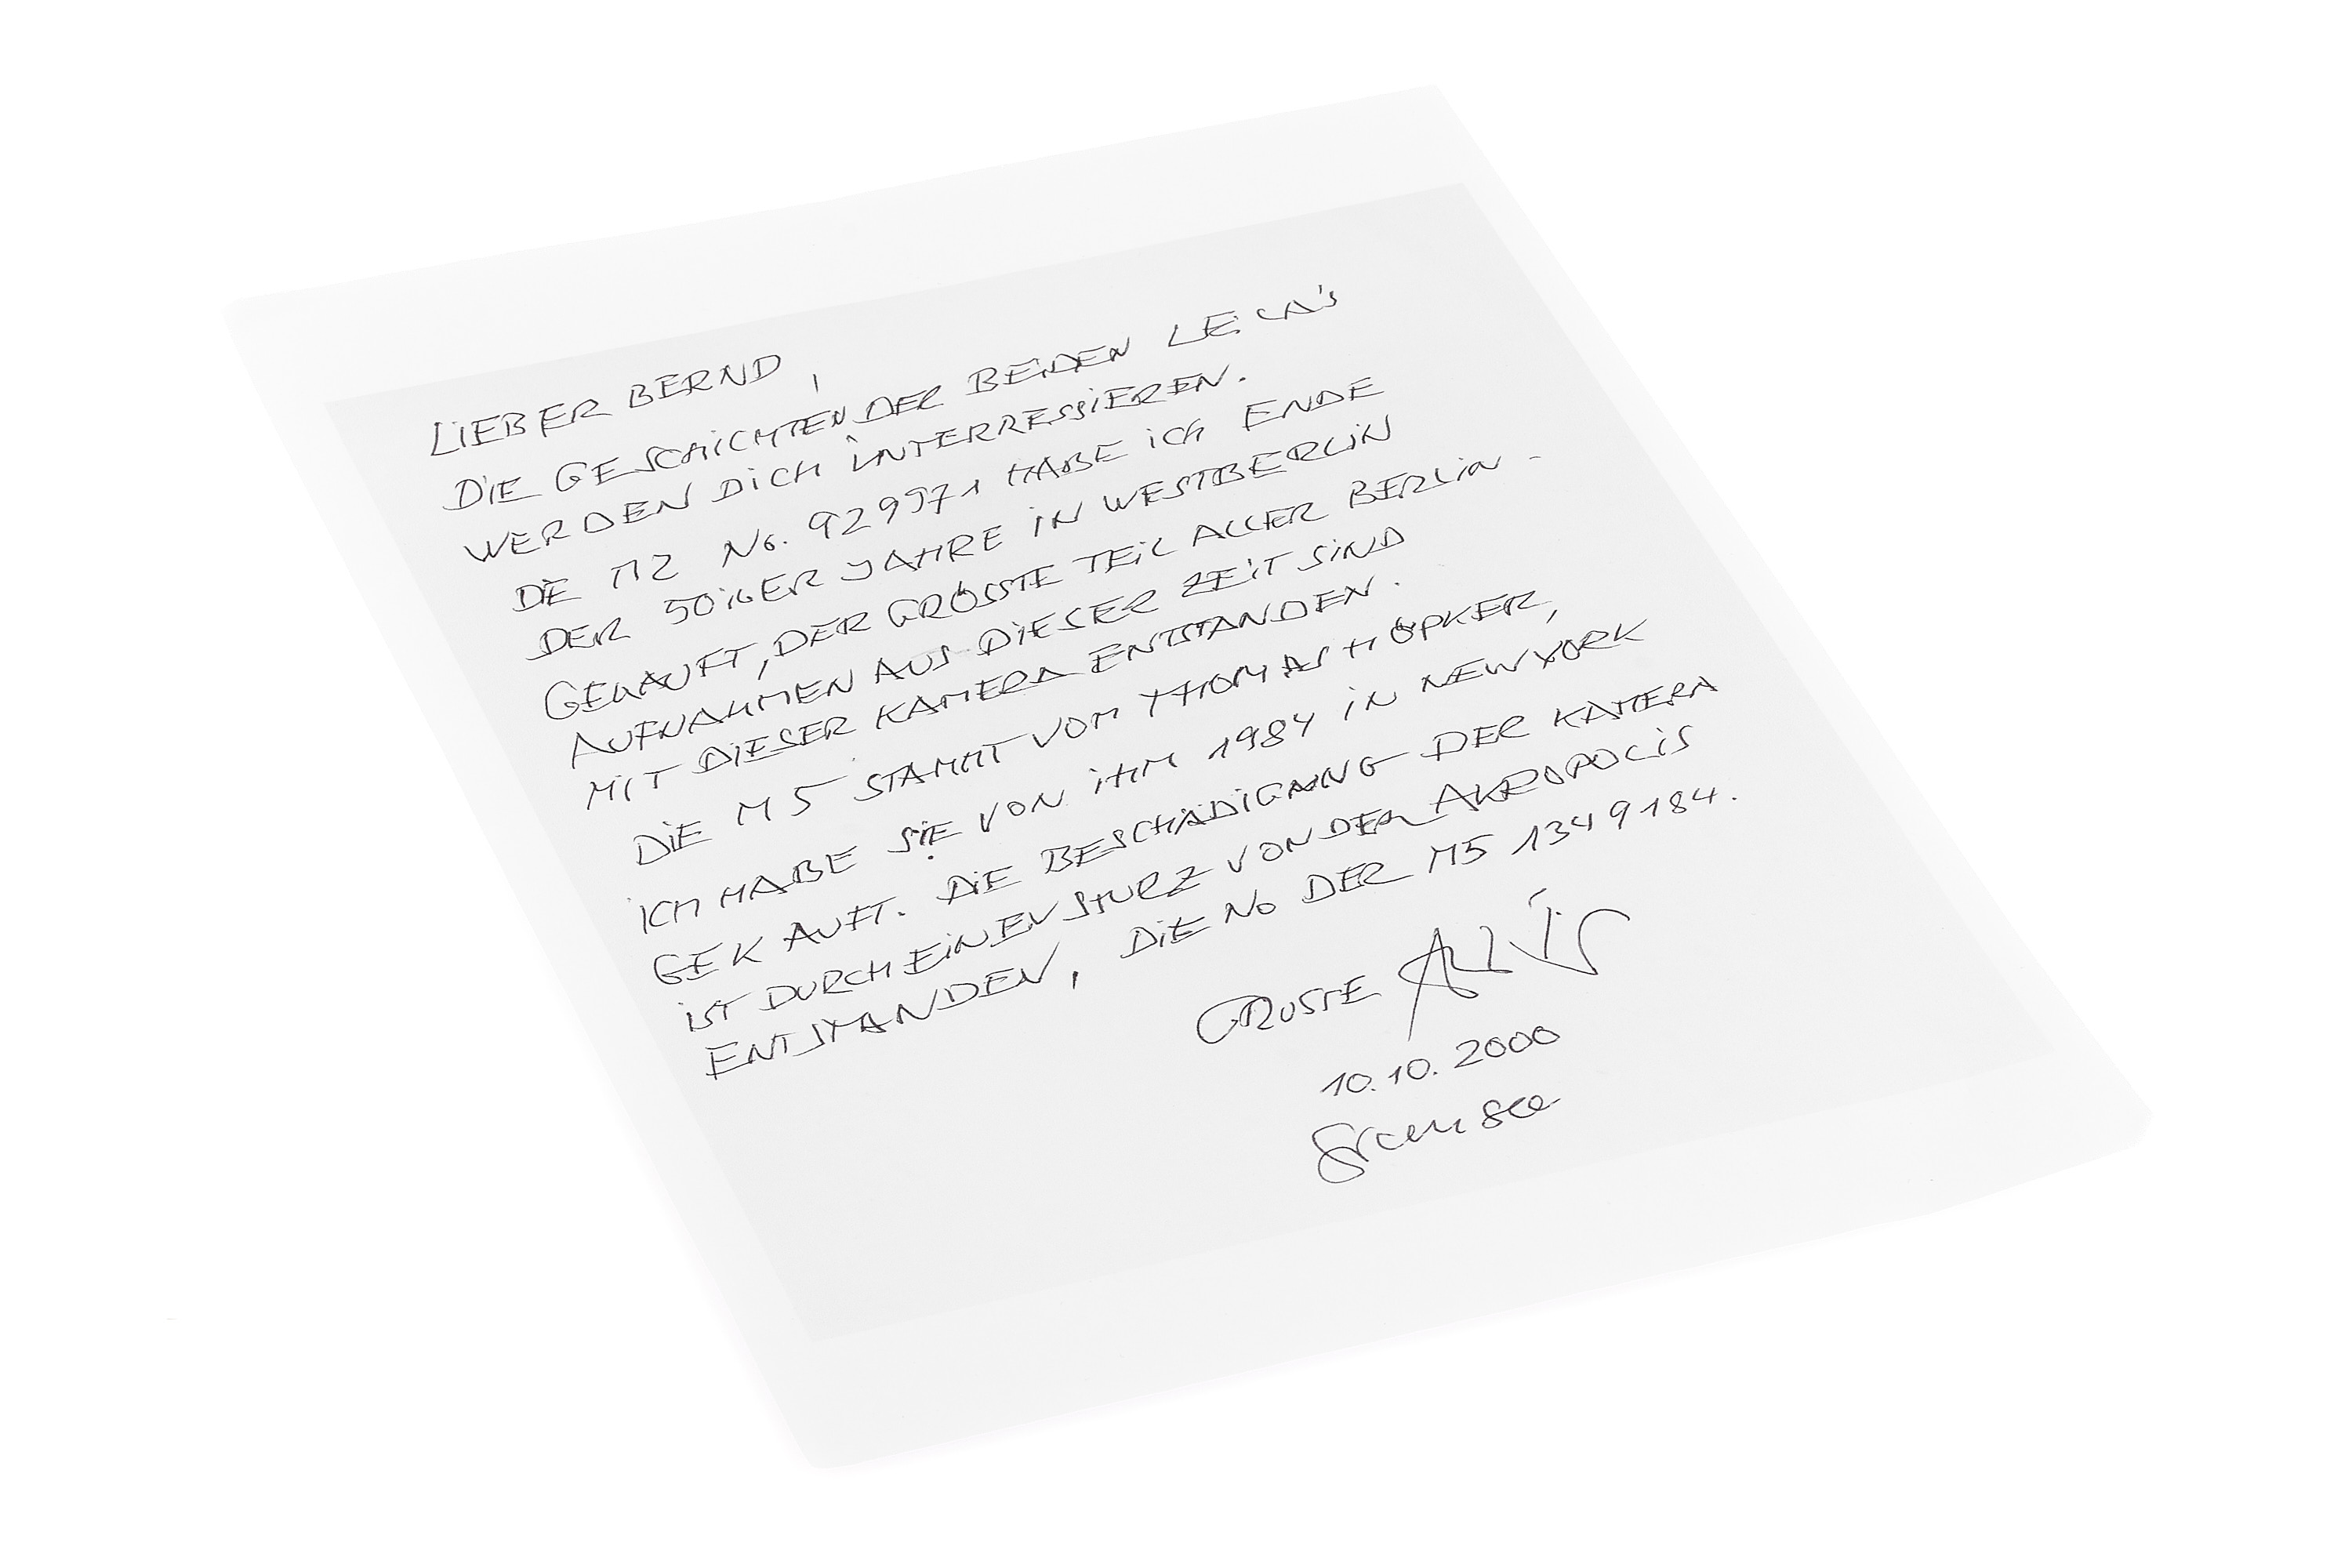 LIEBER BERND,
DIE GESCHICHTEN DER BEIDEN LEICA'S
WERDEN DICH INTERRESSIEREN.
DIE M2 No. 929971 HABE ICH ENDE
DER 50iGER JAHRE IN WESTBERLIN
GEKAUFT, DER GRÖSSTE TEIL ALLER BERLIN-
AUFNAHMEN AUS DIESER ZEIT SIND
MIT DIESER KAMERA ENTSTANDEN.
DIE M5 STAMMT VOM THOMAS HÖPKER,
ICH HABE SIE VON IHM 1984 IN NEW YORK
GEKAUFT. DIE BESCHÄDIGUNG DER KAMERA
IST DURCH EINEN STURZ VON DER AKROPOLIS
ENTSTANDEN, DIE No DER M5 1349184.
GRÜSSE
10.10.2000